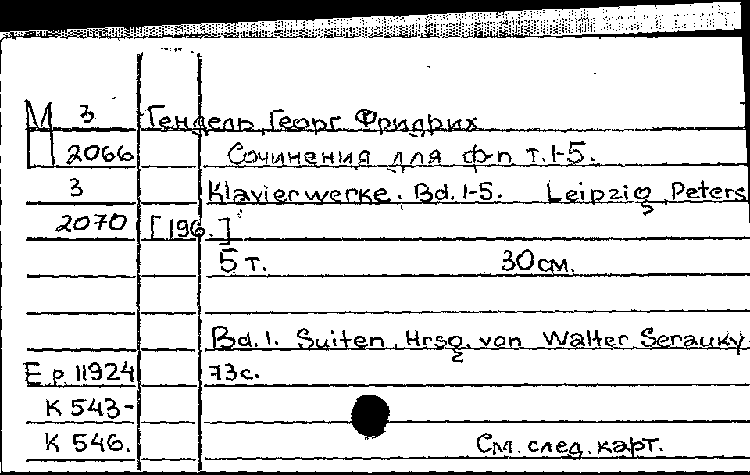 М 3 Гендель, Георг Фридрих
2066 Сочинения для ф-п т.1-5.
3 Klavierwerke. Bd.1-5. Leipzig, Peters
2070 [196.]
5 т. 30 см.
Bd.1. Suiten. Hrsg. von Walter Serauky.
Ep 11924 73с.
К 543-
К 546. См. след. карт.